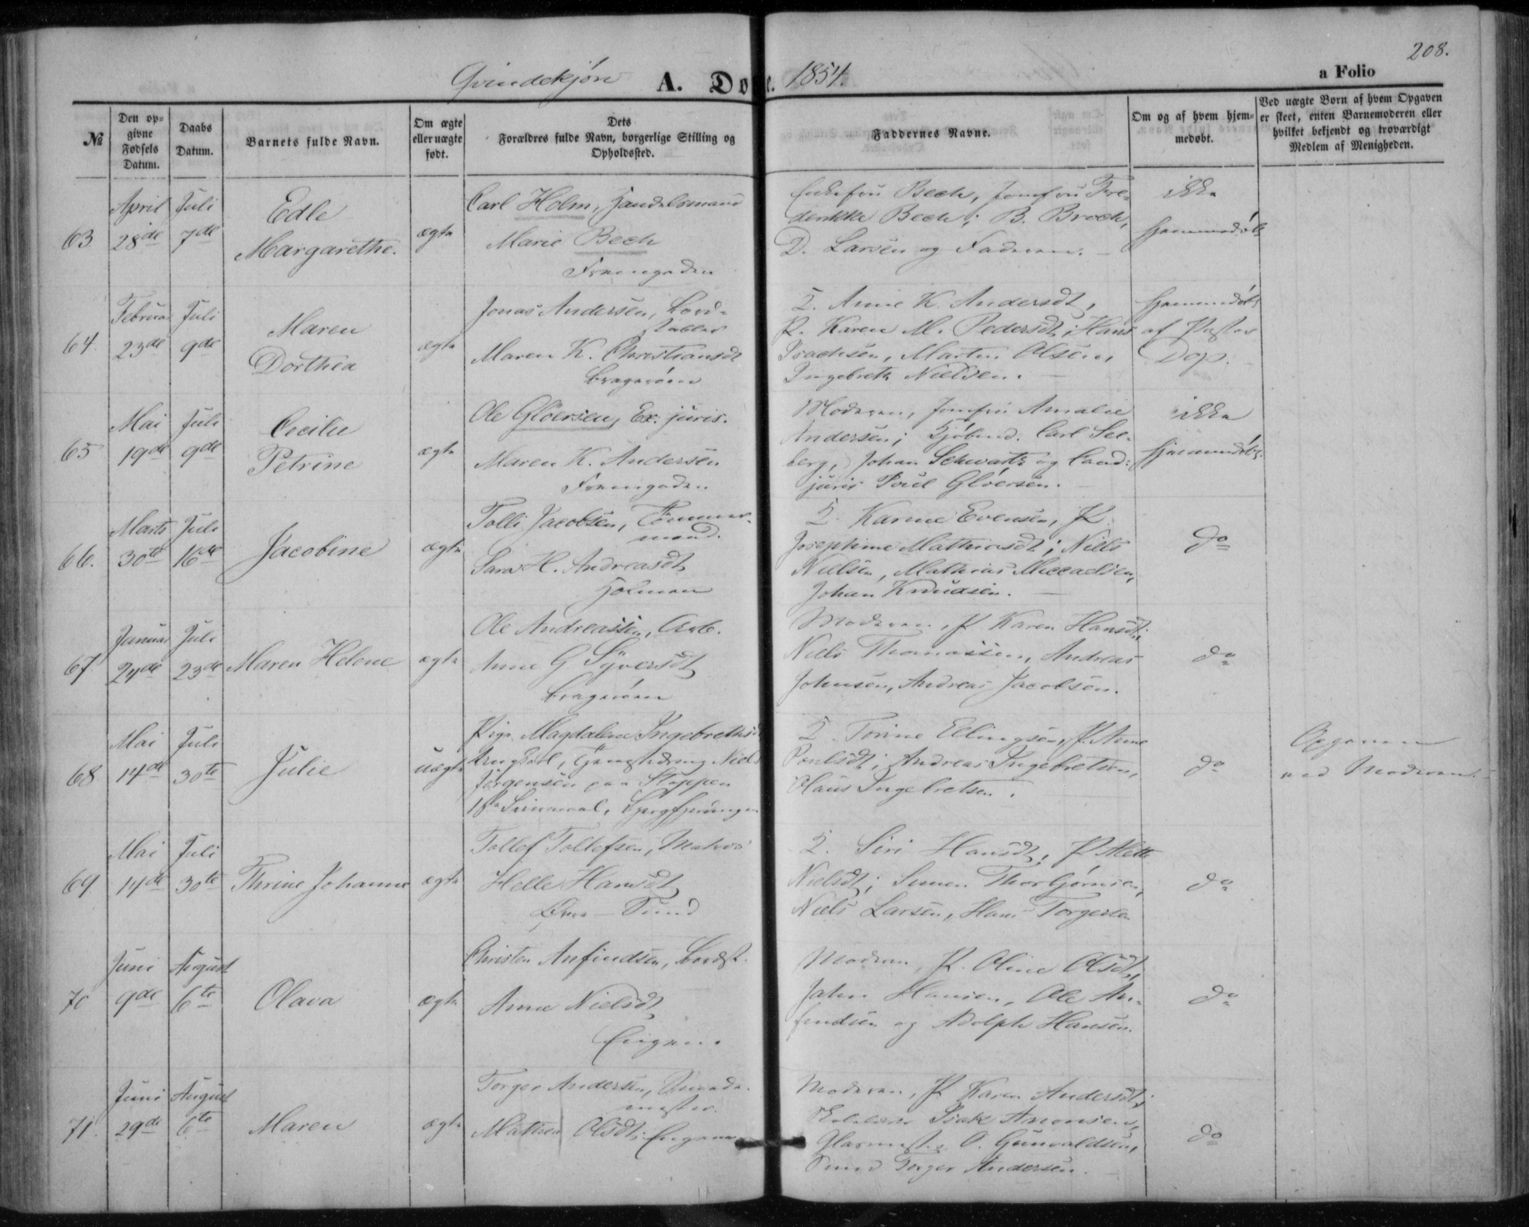 208.
Qvindekjøn A. Døbte. 1854. a Folio
№
Den opgivne Fødsels Datum.
Daabs Datum.
Barnets fulde Navn.
Om ægte eller uægte født.
Dets Forældres fulde Navn, borgerlige Stilling og Opholdssted.
Faddernes Navne.
Om og af hvem hjemmedøbt.
Ved uægte Børn af hvem Opgaven er skeet, enten Barnemoderen eller hvilket bekjendt og troværdigt Medlem af Menigheden.
63
April 28de
Juli 7de
Edle
Margarethe.
ægte
Carl Holm, Handelsmand
Marie Bech
Bech, Jomfru Fre-
derikke Bech; B. Broch,
D. Larsen og Faderen.
ikke
hjemmedøbt
64
Februar 23de
Juli 9de
Maren
Dorthea
ægte
Jonas Andersen, Bord-
stabler
Maren K. Christiansdt
Bragerøen
Anne K. Andersdt,
P. Karen M. Pedersdt; Hans
Isachsen, Martin Olsen,
Ingebret Nielsen.
hjemmedøbt
af Pastor
Dop.
65
Mai 19de
Juli 9de
Cecilie
Petrine
ægte
Ole Gløersen, Ex. juris.
Maren K. Andersen
Moderen, Jomfru Amalie
Andersen; Kjøbmd. Carl See-
berg, Johan Schwartz og Cand:
juris Poul Gløersen.
ikke
hjemmedøbt.
66.
Marts 30te
Juli 16de
Jacobine
ægte
Tolli Jacobsen, Tømmer-
mand.
Sara H. Andreasdt
Holmen
Karine Evensen, P.
Josephine Mathiasdt; Niels
Nielsen, Mathias
Johan Knudsen.
do
67
Januar 24de
Juli 23de
Maren Helene
ægte
Ole Andreassen, Arb.
Anne G Syversdt
Bragerøen
Moderen, P Karen Hansdt;
Niels Thomassen, Andreas
Johnsen, Andreas Jacobsen.
do
68
Mai 14de
Juli 30te
Julie
uægte
Pige Magdalene Ingebretsdt
Ungkarl, Niels
Jørgensen paa Stoppen
Tonine Ellingsen, P. Anne
Poulsdt; Andreas Ingebretsen,
Olaus Ingebretsen.
do
Opgaven
ved Moderen.
69
Mai 14de
Juli 30te
Thrine Johanne
ægte
Tollef Tollefsen, Matros
Helle Hansdt
Øvre-Sund
Siri Hansdt, P Mette
Nielsdt; Simen Thorbjørnsen,
Niels Larsen, Hans Torgersen
do
70
Juni 9de
August 6te
Olava
ægte
Christen Anfindsen, Bordst.
Anne Nielsdt
Engene.
Moderen, P. Oline Olsdt,
John Hansen, Ole An-
findsen og Adolph Hansen.
do
71.
Juni 29de
August 6te
Maren
ægte
Torger Andersen,
Mathea Olsdt; Engene
Moderen, P Karen Andersdt;
Isak Amonsen,
O. Gunvaldsen,
Torger Andersen.
do